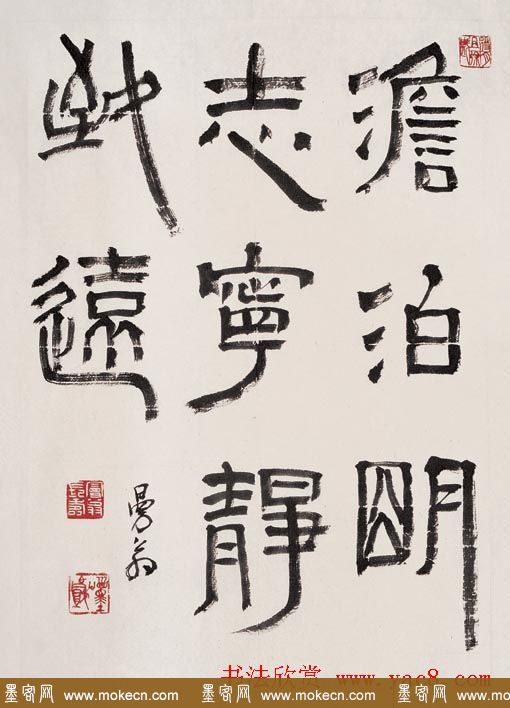 澹泊明
志寧靜
致遠
曼翁
曼翁長壽
书法欣赏 www.yac8.com
墨客网 www.mokecn.com 墨客网 www.mokecn.com 墨客网